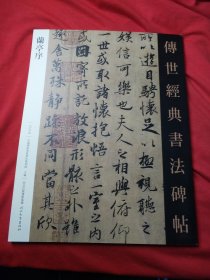 傳世經典書法碑帖
所以遊目騁懷足以極視聽之
娛信可樂也夫人之相與俯仰
一世或取諸懷抱悟言一室之內
因寄所託放浪形骸之外雖
趣舍萬殊靜躁不同當其欣
蘭亭序